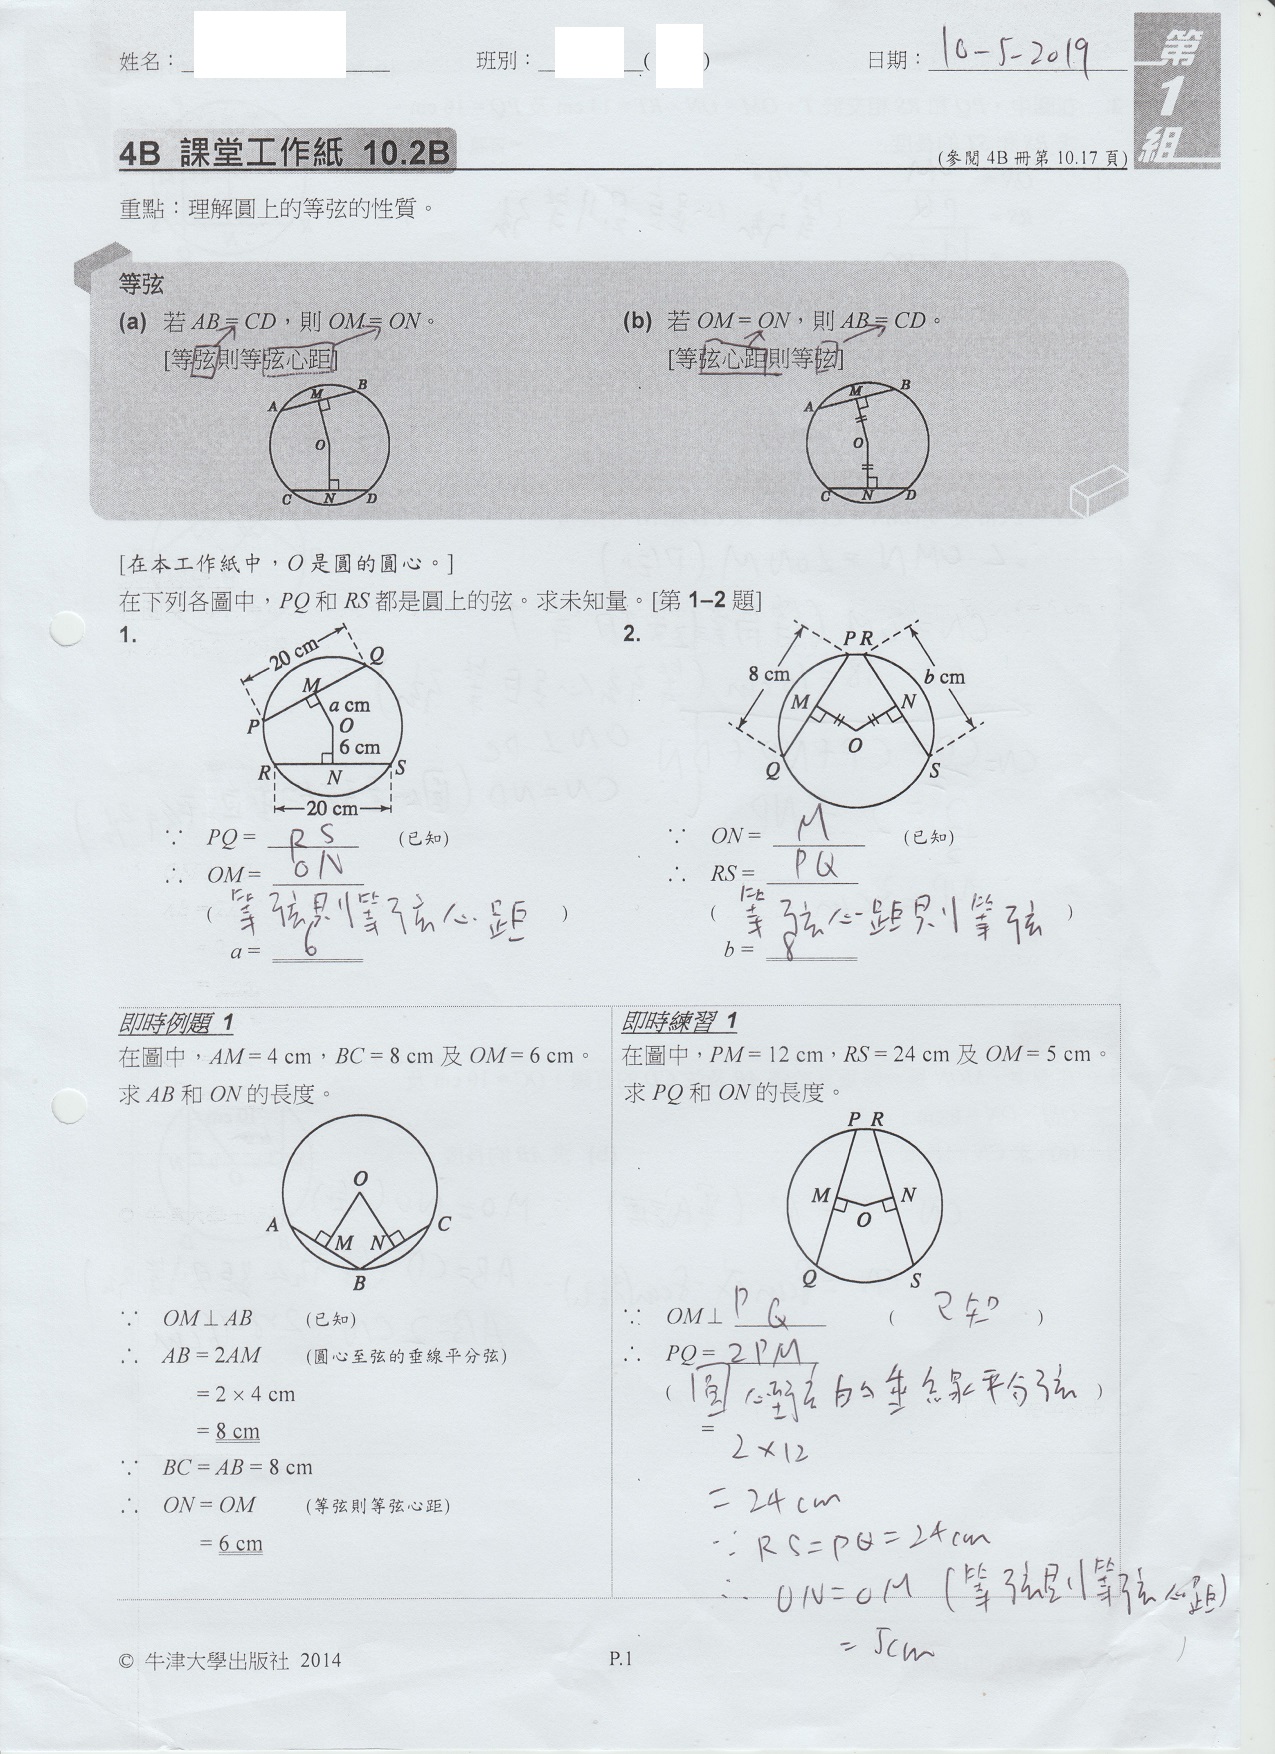 姓名：
班別：
(
)
日期：10-5-2019
第
1
組
4B 課堂工作紙 10.2B
(參閱 4B 冊第 10.17 頁)
重點：理解圓上的等弦的性質。
等弦
(a) 若 AB = CD，則 OM = ON。
[等弦則等弦心距]
A M B
O
C N D
(b) 若 OM = ON，則 AB = CD。
[等弦心距則等弦]
A M B
O
C N D
[在本工作紙中，O 是圓的圓心。]
在下列各圖中，PQ 和 RS 都是圓上的弦。求未知量。[第 1–2 題]
1.
20 cm
Q
M
a cm
P
O
6 cm
R N S
20 cm
∵ PQ = RS (已知)
∴ OM = ON
( 等弦則等弦心距 )
a = 6
2.
P R
8 cm
b cm
M N
O
Q S
∵ ON = M (已知)
∴ RS = PQ
( 等弦心距則等弦 )
b = 8
即時例題 1
在圖中，AM = 4 cm，BC = 8 cm 及 OM = 6 cm。
求 AB 和 ON 的長度。
O
A C
M N
B
∵ OM ⊥ AB (已知)
∴ AB = 2AM (圓心至弦的垂線平分弦)
= 2 × 4 cm
= 8 cm
∵ BC = AB = 8 cm
∴ ON = OM (等弦則等弦心距)
= 6 cm
即時練習 1
在圖中，PM = 12 cm，RS = 24 cm 及 OM = 5 cm。
求 PQ 和 ON 的長度。
P R
M N
O
Q S
∵ OM ⊥ PQ ( 已知 )
∴ PQ = 2PM
( 圓心至弦的垂線平分弦 )
= 2×12
= 24 cm
∵ RS = PQ = 24 cm
∴ ON = OM (等弦則等弦心距)
= 5cm
© 牛津大學出版社 2014
P.1